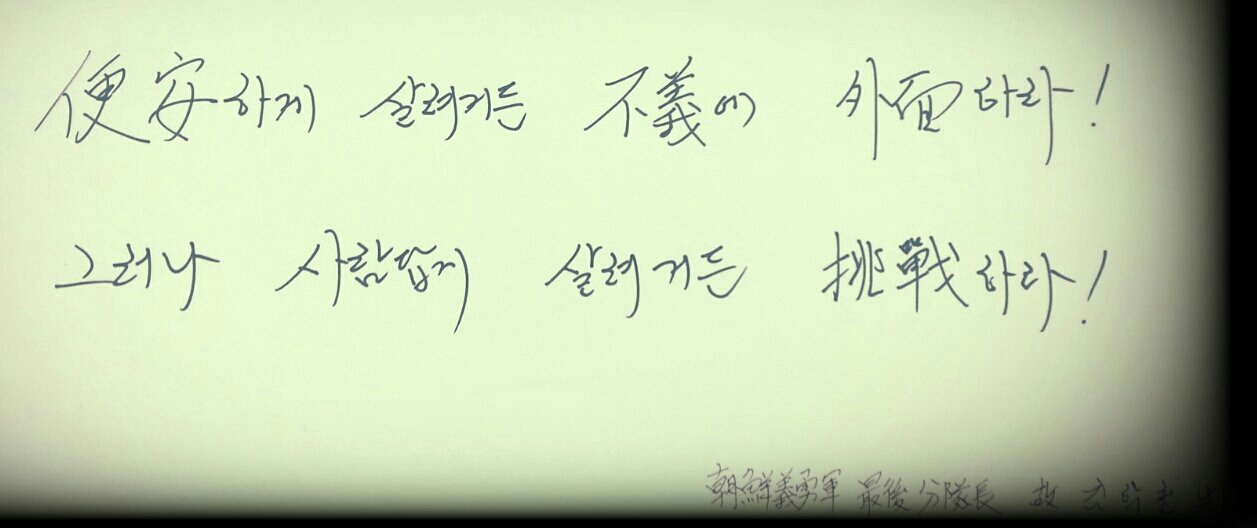 便安하게 살려거든 不義에 外面하라!
그러나 사람답게 살려거든 挑戰하라!
朝鮮義勇軍 最後 分隊長 故